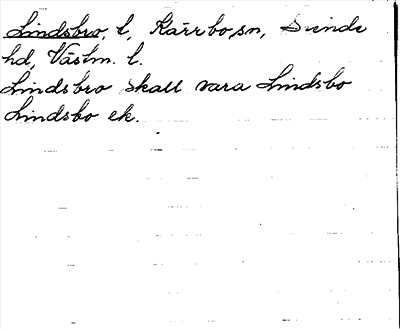 Lindsbro, l, Kärrbo, sn, Siende
hd, Västm. l.
Lindsbro skall vara Lindsbo
Lindsbo ek.